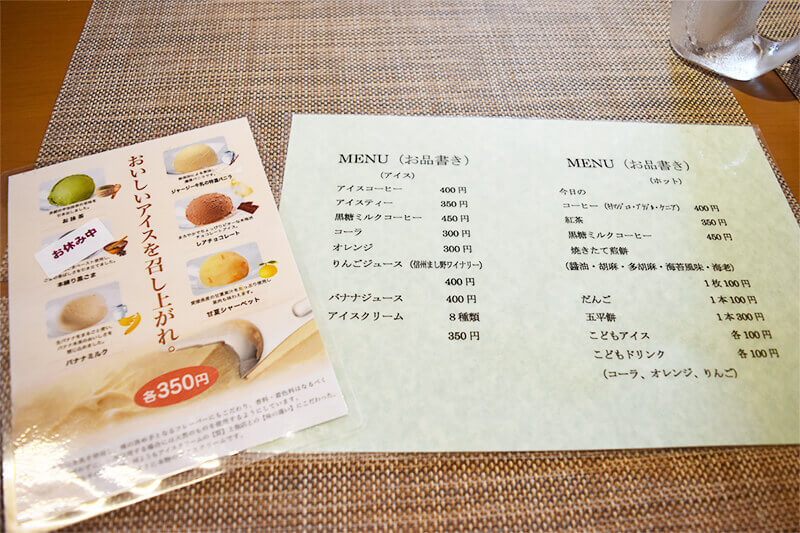 おいしいアイスを召し上がれ。
お抹茶
ジャージー牛乳の特濃バニラ
お休み中
レアチョコレート
本練り黒ごま
甘夏シャーベット
バナナミルク
各350円
MENU（お品書き）
（アイス）
アイスコーヒー 400円
アイスティー 350円
黒糖ミルクコーヒー 450円
コーラ 300円
オレンジ 300円
りんごジュース（信州まし野ワイナリー）
400円
バナナジュース 400円
アイスクリーム 8種類
350円
MENU（お品書き）
（ホット）
今日の
コーヒー 400円
紅茶 350円
黒糖ミルクコーヒー 450円
焼きたて煎餅
（醤油・胡麻・多胡麻・海苔風味・海老）
1枚100円
だんご 1本100円
五平餅 1本300円
こどもアイス 各100円
こどもドリンク 各100円
（コーラ、オレンジ、りんご）